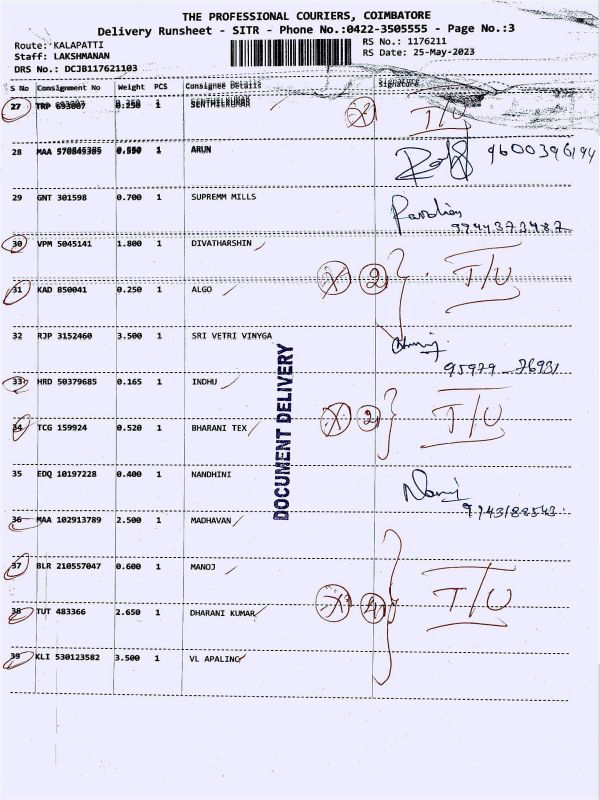 THE PROFESSIONAL COURIERS, COIMBATORE
Delivery Runsheet - SITR - Phone No.:0422-3505555 - Page No.:3
Route: KALAPATTI
RS No.: 1176211
Staff: LAKSHMANAN
RS Date: 25-May-2023
DRS No.: DCJB117621103
S No Consignment No Weight PCS Consignee Details Signature
27 TRP 693007 0.250 1 SENTHILKUMAR T/U
28 MAA 1 ARUN 9600396194
29 GNT 301598 0.700 1 SUPREMM MILLS
30 VPM 5045141 1.800 1 DIVATHARSHIN
31 KAD 850041 0.250 1 ALGO 2 T/U
32 RJP 3152460 3.500 1 SRI VETRI VINYGA
95979 76931
33 HRD 50379685 0.165 1 INDHU
34 TCG 159924 0.520 1 BHARANI TEX 2 T/U
35 EDQ 10197228 0.400 1 NANDHINI
9943188543
36 MAA 102913789 2.500 1 MADHAVAN
37 BLR 210557047 0.600 1 MANOJ
38 TUT 483366 2.650 1 DHARANI KUMAR 4 T/U
39 KLI 530123582 3.500 1 VL APALING
DOCUMENT DELIVERY